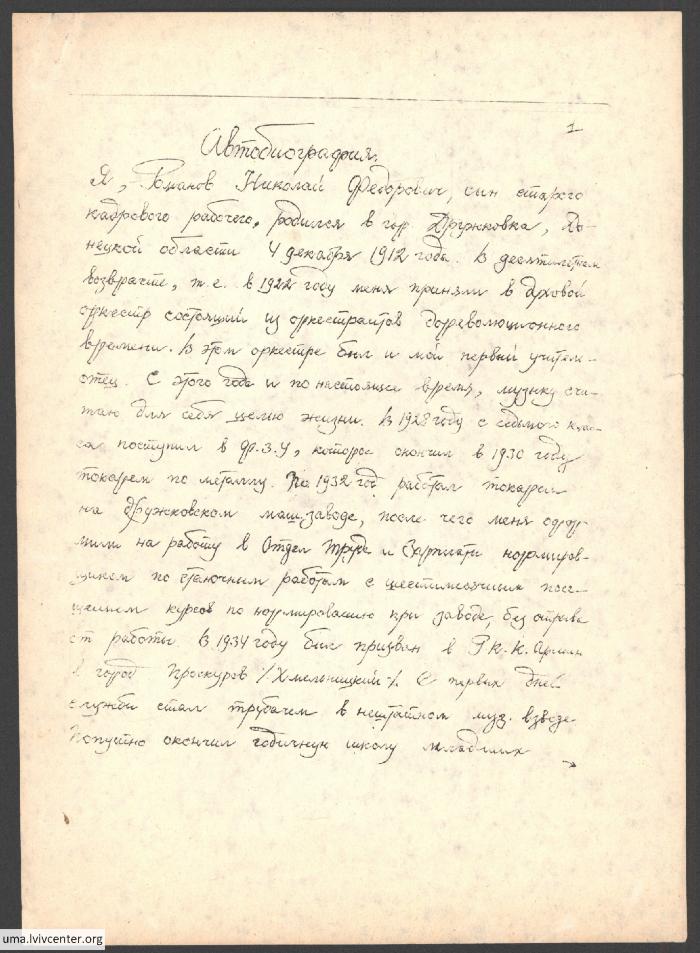 1
Автобиография.
Я, Романов Николай Федорович, сын старого
кадрового рабочего, родился в гор Дружковка, До-
нецкой области 4 декабря 1912 года. В десятилетнем
возврасте, т.е. в 1922 году меня приняли в духовой
оркестр состоящий из оркестрантов дореволюционного
времени. В этом оркестре был и мой первый учитель-
отец. С этого года и по настоящее время, музыку счи-
таю для себя целью жизни. В 1928 году с седьмого клас-
са поступил в ф.З.У, которое окончил в 1930 году
токарем по металлу. По 1932 год работал токарем
на Дружковском маш.заводе, после чего меня
на работу в Отдел Труда и Зарплаты нормиров-
щиком по станочным работам с шестимесячным посе-
щением курсов по нормированию при заводе, без отрыва
от работы. В 1934 году был призван в Р.К.К. Армии
в город Проскуров /Хмельницкий/. С первых дней
службы стал трубачем в нештатном муз. взводе
Попутно окончил годичную школу младших
uma.lvivcenter.org